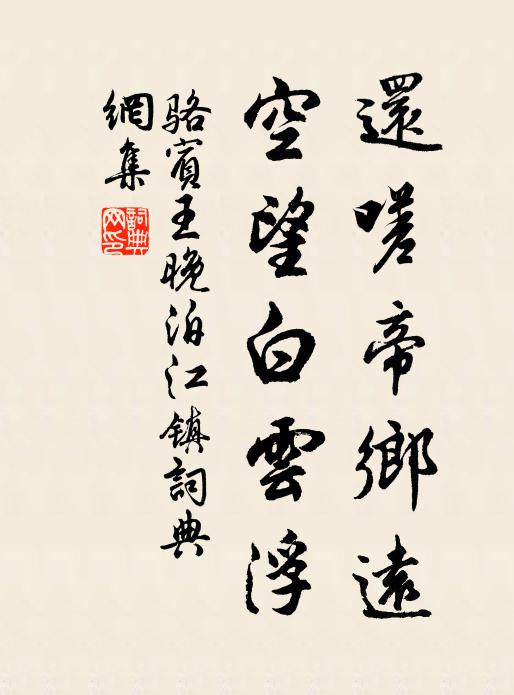 還嗟帝鄉遠
空望白雲浮
駱賓王晚泊江鎮詞典
網集
詞典
网印